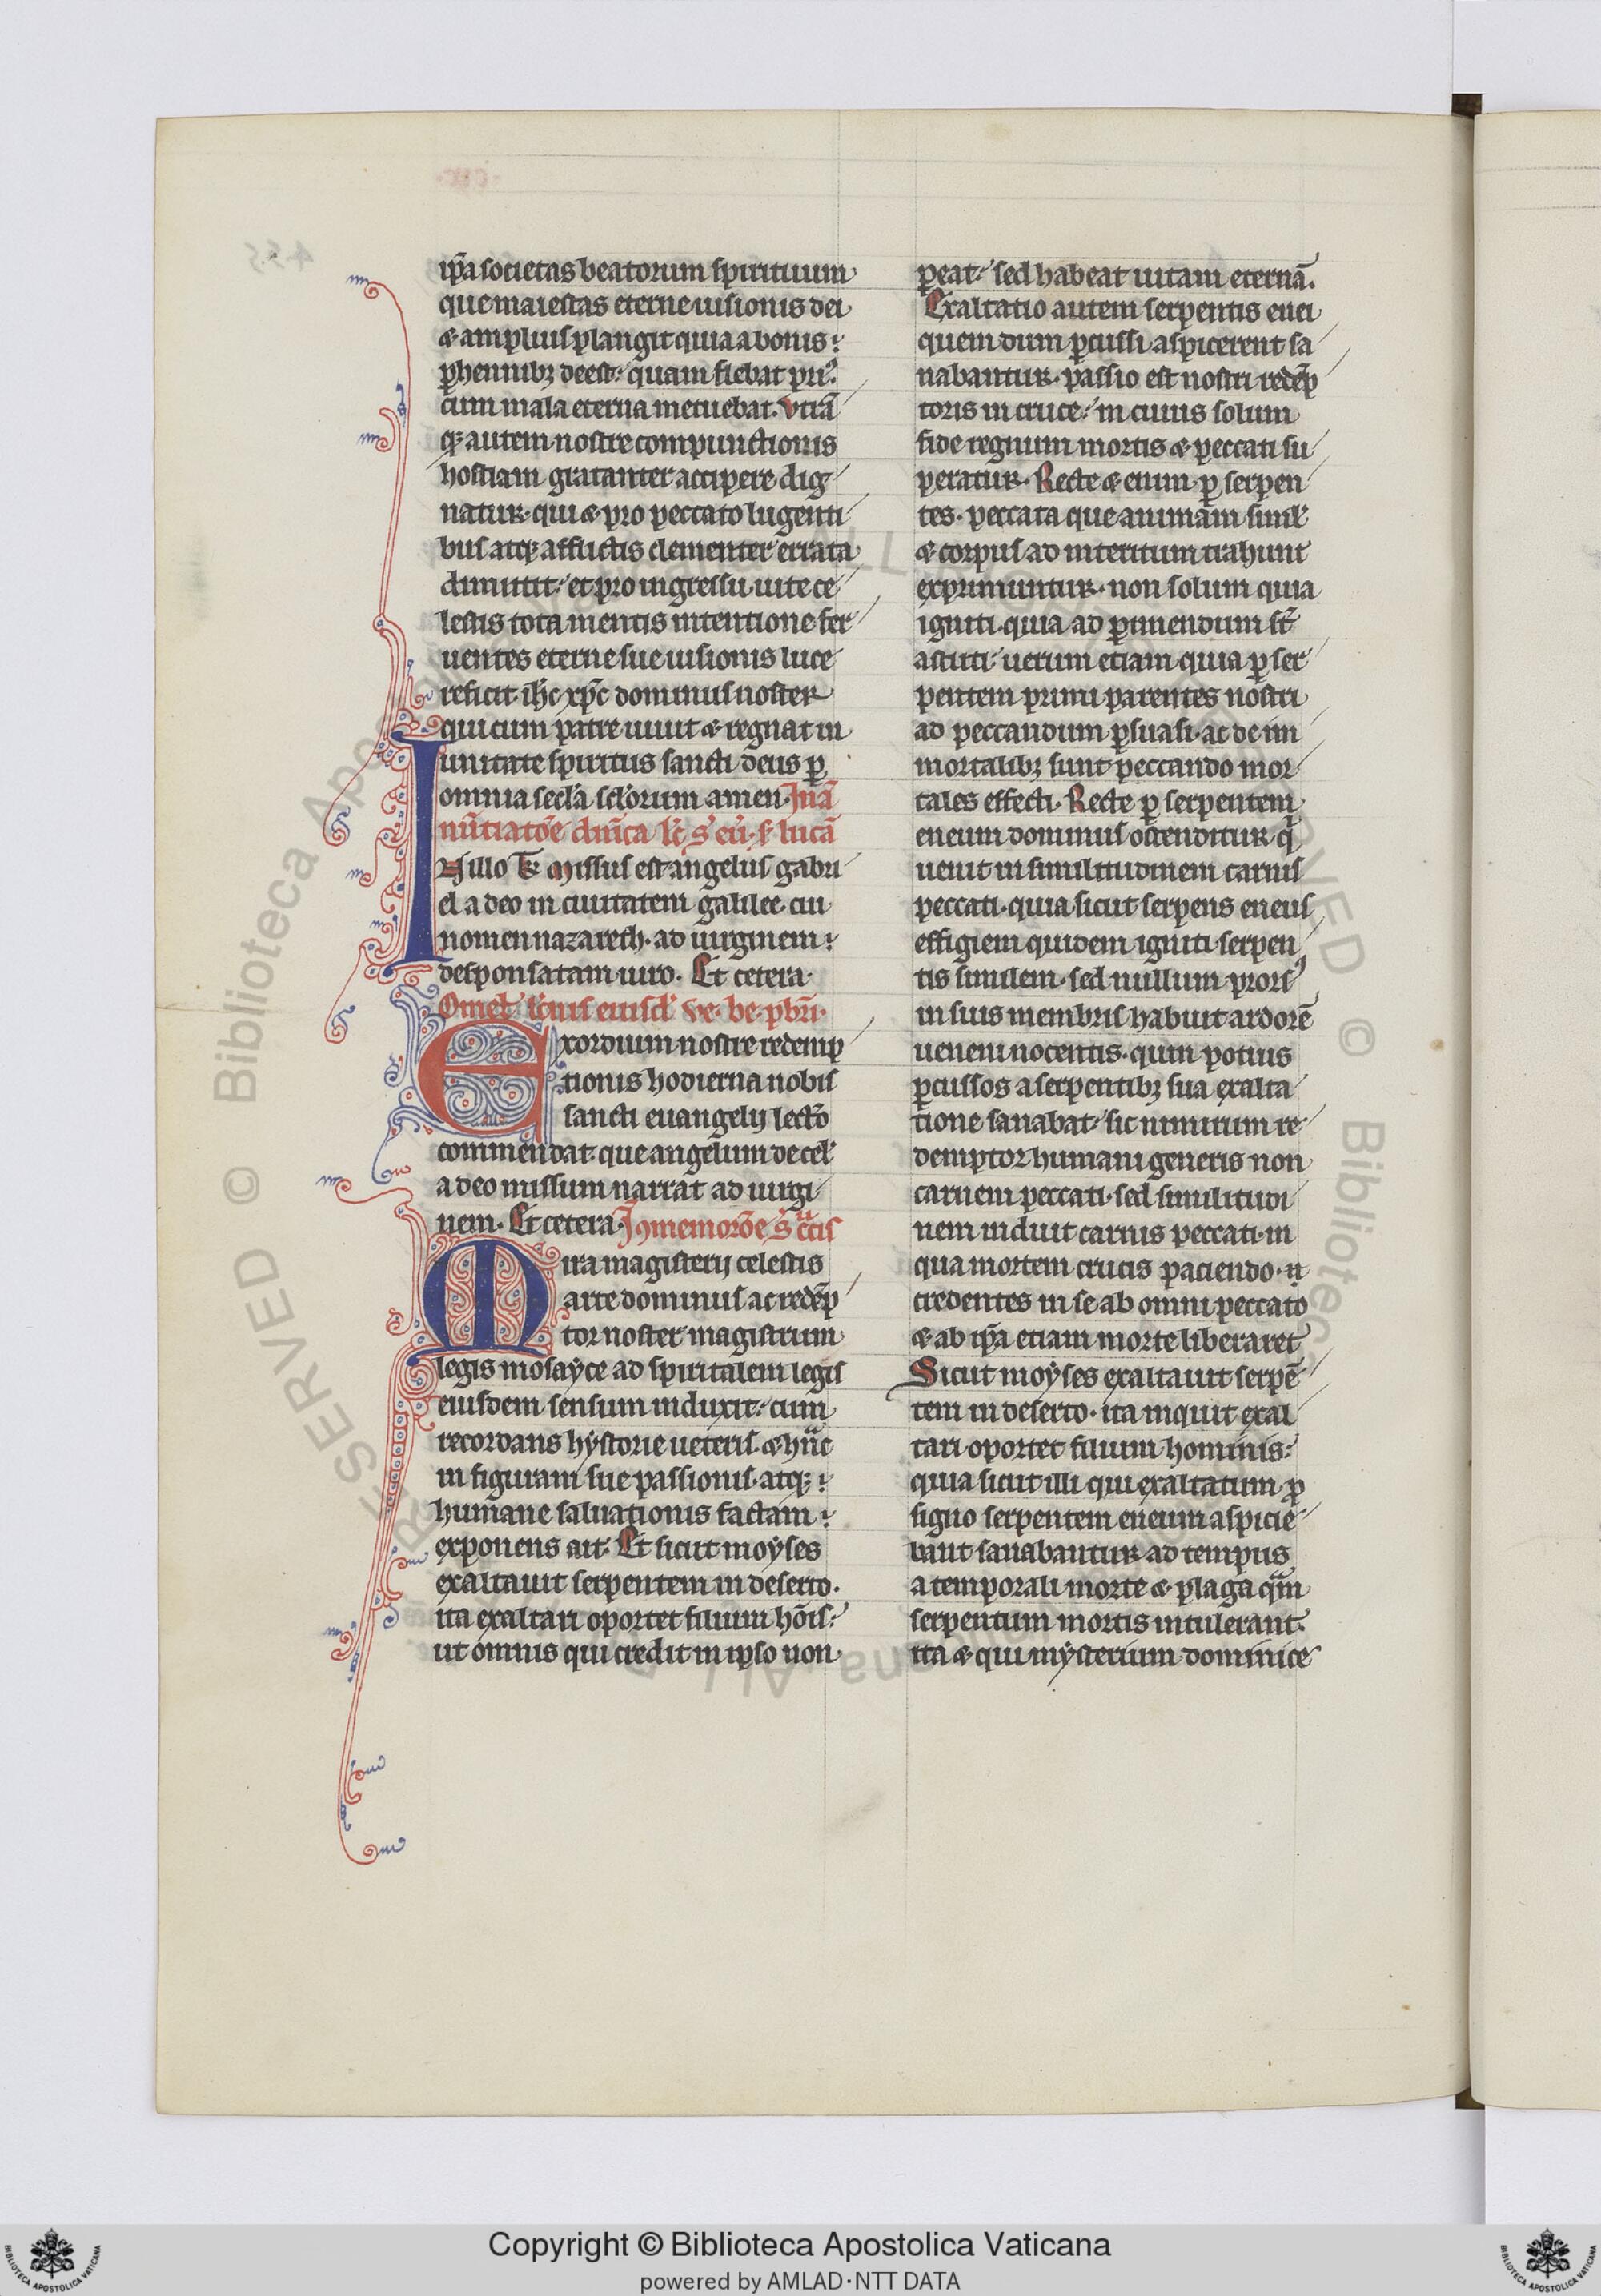 ip̃a societas beatorum spirituum
que maiestas eterne uisionis dei
⁊ amplius plangit quia a bonis
ꝑhennibꝫ deest: quam flebat pri᷒
cum mala eterna metuebat. Vtrã
qꝫ autem nostre compunctionis
hostiam gratanter accipere dig
natur. qui ⁊ pro peccato lugenti
bus atqꝫ afflictis clementer errata
dimittit: et pro ingressu uite ce
lestis tota mentis intentione fer
uentes eterne sue uisionis luce
reficit ih̃c xp̃c dominus noster
qui cum patre uiuit ⁊ regnat in
unitate spiritus sancti deus ꝑ
omnia secl̃a scl̃orum amen. In ã
nũtiatõe dñica lc̃ s̃ eũ. s̃ lucã
IN illo t̃ Missus est angelus gabri
el a deo in ciuitatem galilee cui
nomen nazareth. ad uirginem
desponsatam uiro. Et cetera.
Omel̃ l̃onis eiusd̃ ve. be. pb̃ri.
Exordium nostre redemp
tionis hodierna nobis
sancti euangelij lectõ
commendat que angelum de cel̃
a deo missum narrat ad uirgi
nem. Et cetera. In memorõe s̃ cͣcis
Mira magisterij celestis
arte dominus ac redẽp
tor noster magistrum
legis mosayce ad spiritalem legis
eiusdem sensum induxit: cum
recordans hystorie ueteris. ⁊ hãc
in figuram sue passionis. atqꝫ
humane saluationis factam
exponens ait. Et sicut moyses
exaltauit serpentem in deserto.
ita exaltari oportet filium hõis:
ut omnis qui credit in ipso non
ꝑeat: sed habeat uitam eternã.
Exaltatio autem serpentis enei
quem dum ꝑcussi aspicerent sa
nabantur. passio est nostri redẽp
toris in cruce: in cuius solum
fide regnum mortis ⁊ peccati su
peratur. Recte ⁊ enim ꝑ serpen
tes. peccata que animam simul̃
⁊ corpus ad interitum trahunt
exprimuntur. non solum quia
igniti. quia ad ꝑimendum st̃
astuti: uerum etiam quia ꝑ ser
pentem primi parentes nostri
ad peccandum ꝑsuasi. ac de im
mortalibꝫ sunt peccando mor
tales effecti. Recte ꝑ serpentem
eneum dominus ostenditur. q̃
uenit in similitudinem carnis
peccati. quia sicut serpens eneus
effigiem quidem igniti serpen
tis similem. sed nullum prorsꝰ
in suis membris habuit ardorẽ
ueneni nocentis. quin potius
ꝑcussos a serpentibꝫ sua exalta
tione sanabat: sic nimirum re
demptor humani generis non
carnem peccati. sed similitudi
nem induit carnis peccati. in
qua mortem crucis paciendo.
credentes in se ab omni peccato
⁊ ab ip̃a etiam morte liberaret
Sicut moyses exaltauit serpẽ
tem in deserto. ita inquit exal
tari oportet filium hominis:
quia sicut illi qui exaltatum ꝓ
signo serpentem eneum aspicie
bant sanabantur ad tempus
a temporali morte ⁊ plaga quã
serpentium mortis intulerant.
ita ⁊ qui mysterium dominice
Copyright © Biblioteca Apostolica Vaticana
powered by AMLAD·NTT DATA